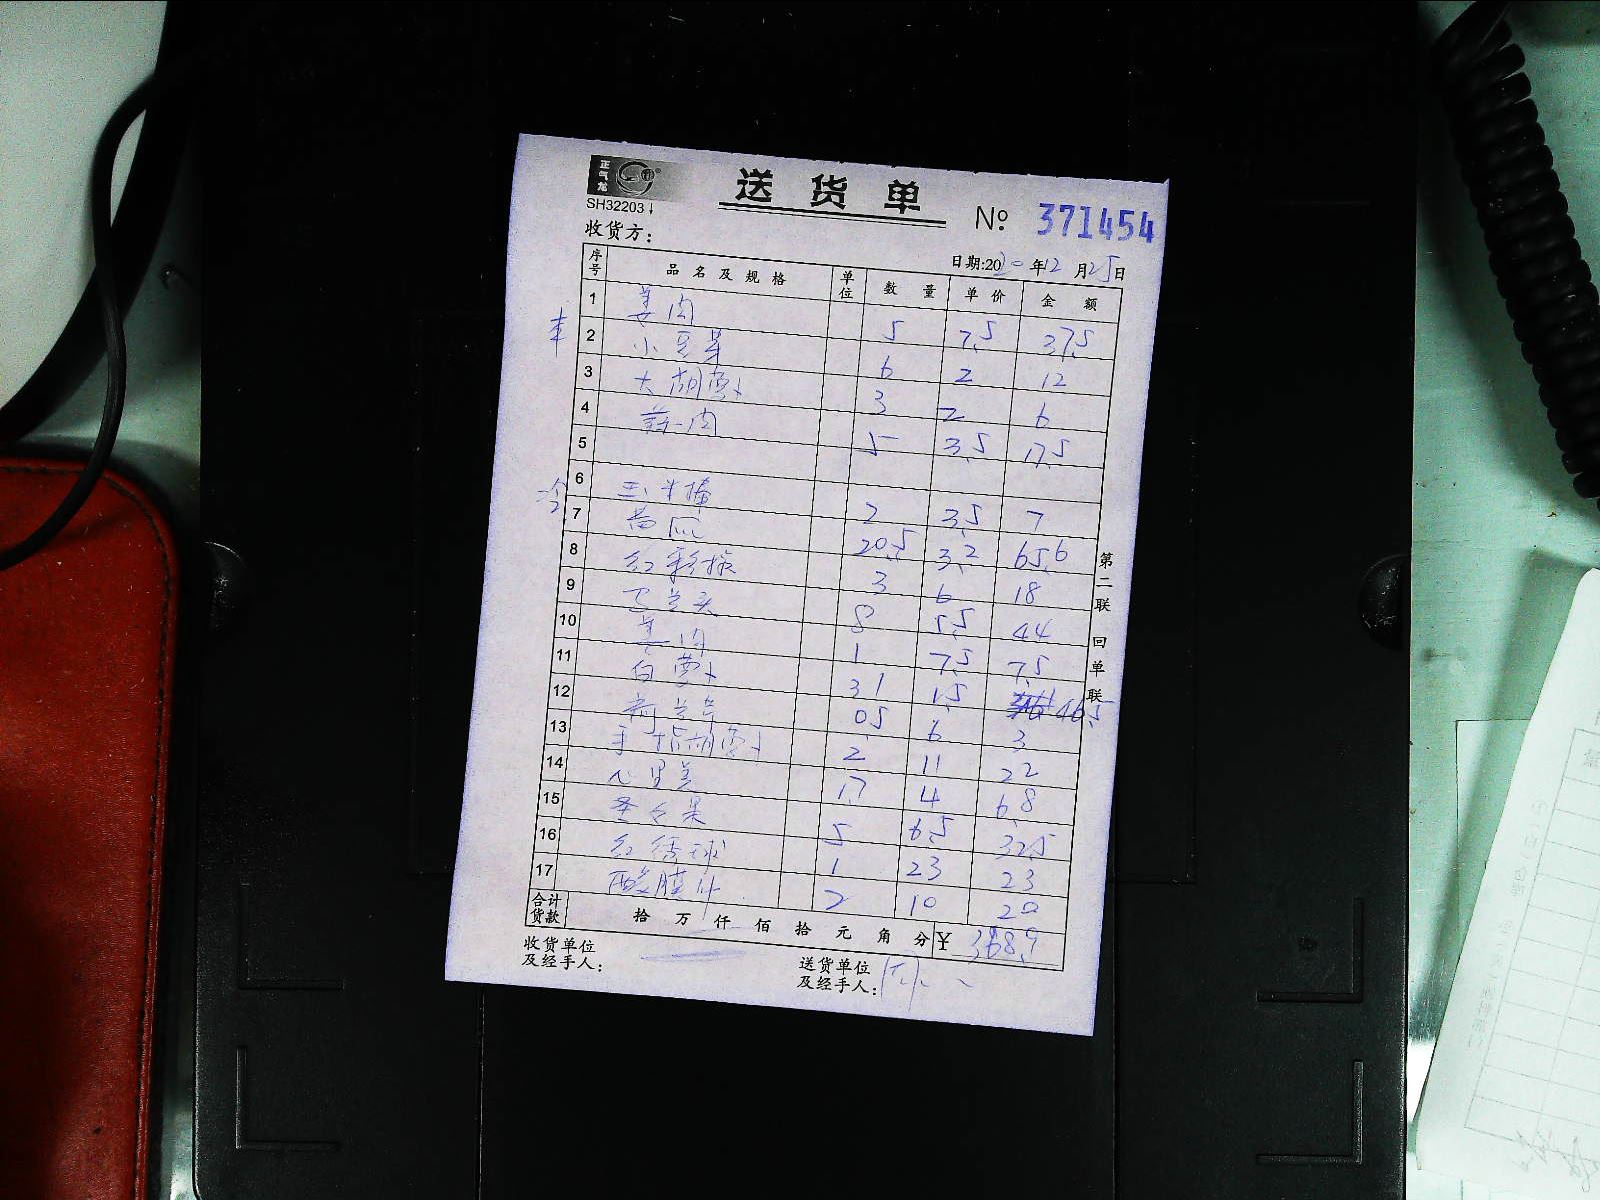 正气龙
SH32203
送货单
No 371454
收货方：
日期:2020年12月25日
序号 品名及规格 单位 数量 单价 金额
1 姜肉 5 7.5 37.5
2 小豆芽 6 2 12
3 大胡萝卜 3 2 6
4 蒜肉 5 3.5 17.5
5
冷
6 玉米棒 2 3.5 7
7 黄瓜 20.5 3.2 65.6
8 红彩椒 3 6 18
9 3 8 5.5 44
10 姜肉 1 7.5 7.5
11 白萝卜 31 1.5 46.5
12 荷兰芹 0.5 6 3
13 手指胡萝卜 2 11 22
14 心里美 1.7 4 6.8
15 圣女果 5 6.5 32.5
16 红绣球 1 23 23
17 酸膜叶 2 10 20
合计货款 拾 万 仟 佰 拾 元 角 分 ¥ 368.9
收货单位及经手人：
送货单位及经手人：
第二联 回单联